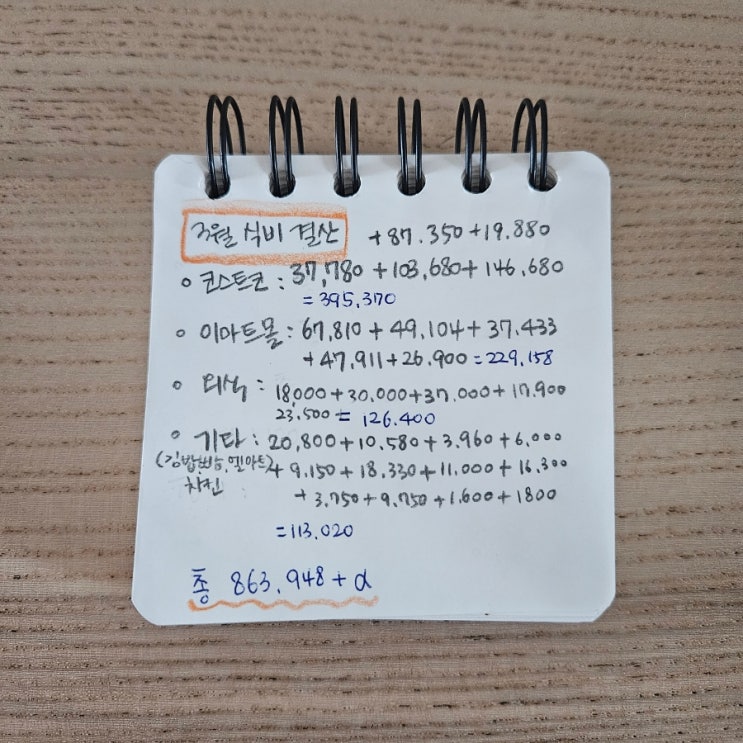 3월 식비 결산 +87.350+19.880
코스트코 : 37,780 +103,680+146,680
=395,370
이마트몰 : 67,810 + 49,104 + 37.433
+47,911+26.900=229,158
외식 : 18000+30.000+37.000+17.900
23,500= 126.400
기타 : 20,800+10.580+3.960+6,000
(김밥,빵,엘마트, +9.150+18.330+11.000+16,300
치킨 +3.750+9.750+1.600+1800
=113,020
총 863.948+α